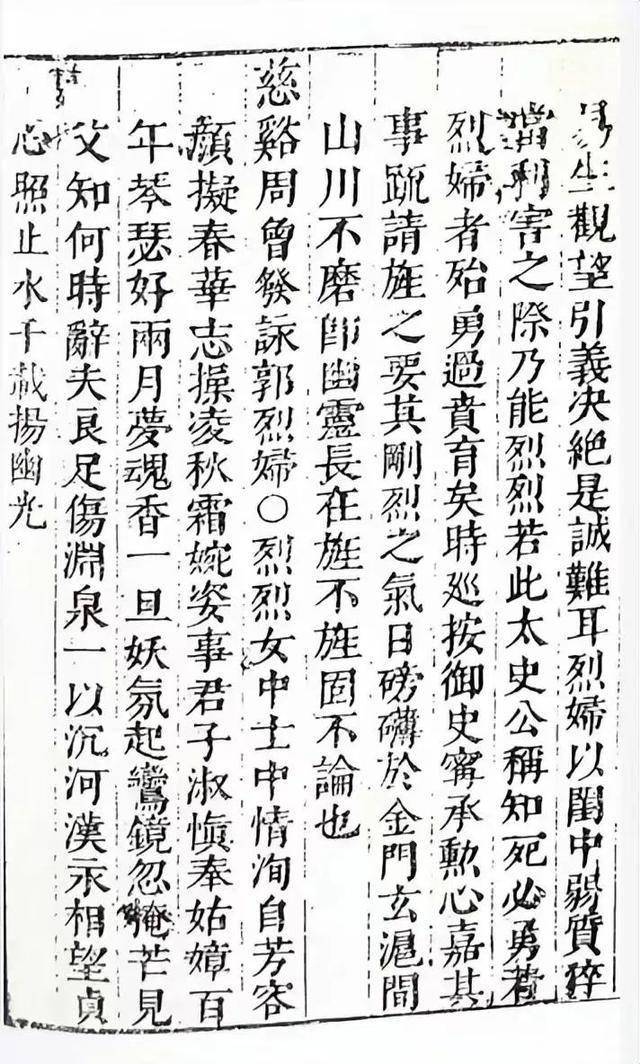 易生觀望引義决絶是誠難耳烈婦以閨中弱質猝
當利害之際乃能烈烈若此太史公稱知死必勇若
烈婦者殆勇過賁育矣時廵按御史甯承勲心嘉其
事䟽請旌之要其剛烈之氣日磅礴於金門玄滬間
山川不磨卽幽靈長在旌不旌固不論也
慈谿周曾發詠郭烈婦○烈烈女中士中情洵自芳容
顏擬春華志操凌秋霜婉姿事君子淑愼奉姑嫜百
年琴瑟好兩月夢魂香一旦妖氛起鸞鏡忽掩芒見
父知何時辭夫良足傷淵泉一以沉河漢永相望貞
心照止水千載揚幽光